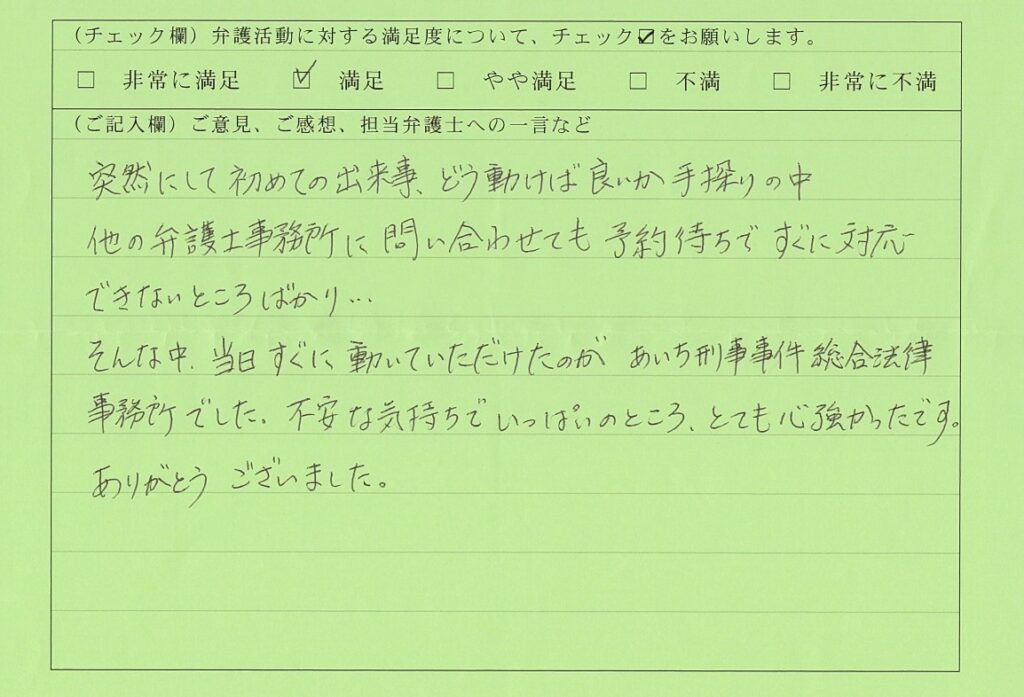 (チェック欄) 弁護活動に対する満足度について、チェック☑をお願いします。
□ 非常に満足 ☑ 満足 □ やや満足 □ 不満 □ 非常に不満
(ご記入欄) ご意見、ご感想、担当弁護士への一言など
突然にして初めての出来事、どう動けば良いか手探りの中
他の弁護士事務所に問い合わせても予約待ちですぐに対応
できないところばかり…
そんな中、当日すぐに動いていただけたのが あいち刑事事件総合法律
事務所でした。不安な気持ちでいっぱいのところ、とても心強かったです。
ありがとうございました。